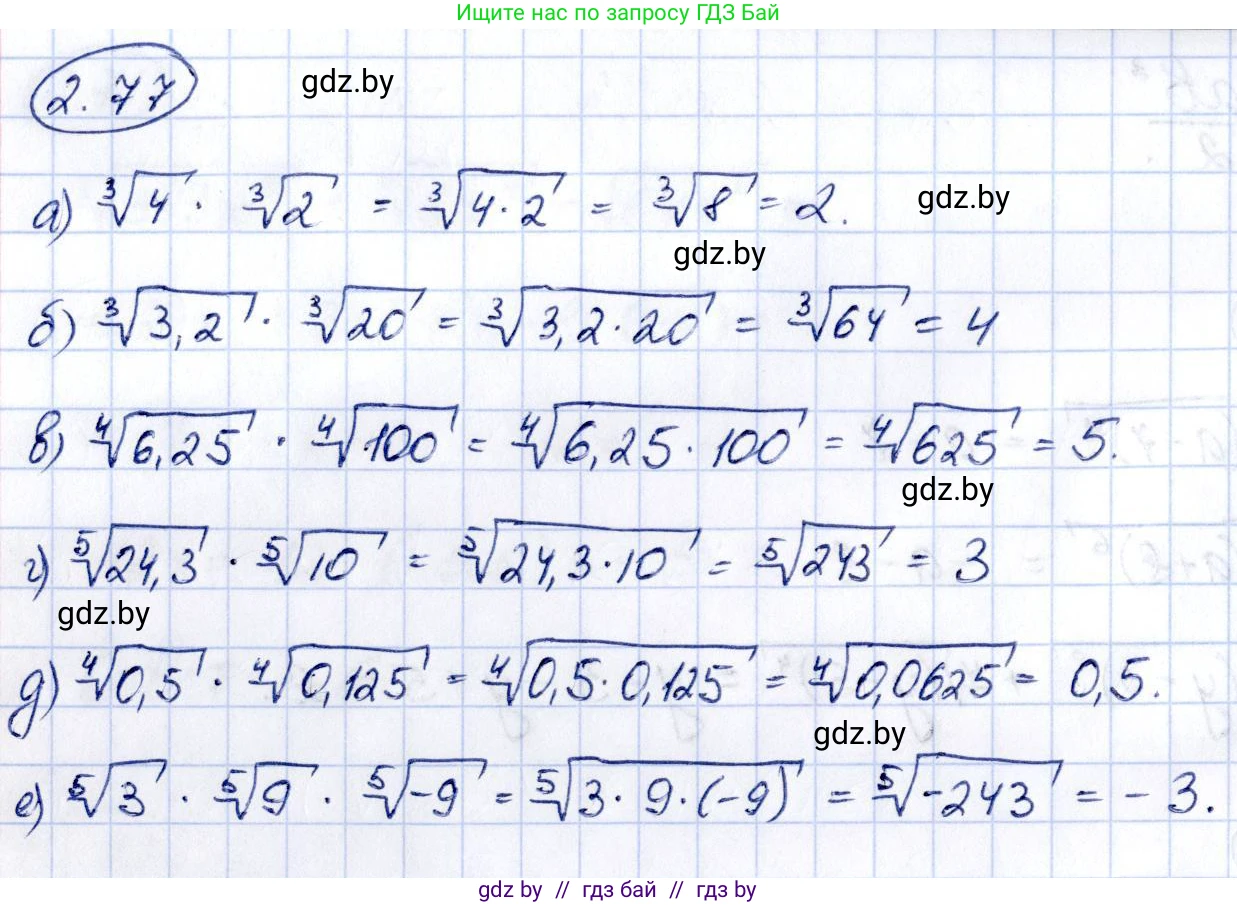 Ищите нас по запросу ГДЗ Бай
2.77 gdz.by
а) ∛4 · ∛2 = ∛(4·2) = ∛8 = 2. gdz.by
gdz.by
б) ∛3,2 · ∛20 = ∛(3,2·20) = ∛64 = 4
в) ∜6,25 · ∜100 = ∜(6,25·100) = ∜625 = 5.
gdz.by
г) ⁵√24,3 · ⁵√10 = ⁵√(24,3·10) = ⁵√243 = 3
gdz.by
д) ∜0,5 · ∜0,125 = ∜(0,5·0,125) = ∜0,0625 = 0,5.
gdz.by
е) ⁵√3 · ⁵√9 · ⁵√-9 = ⁵√(3·9·(-9)) = ⁵√-243 = -3.
gdz by // гдз бай // гдз by